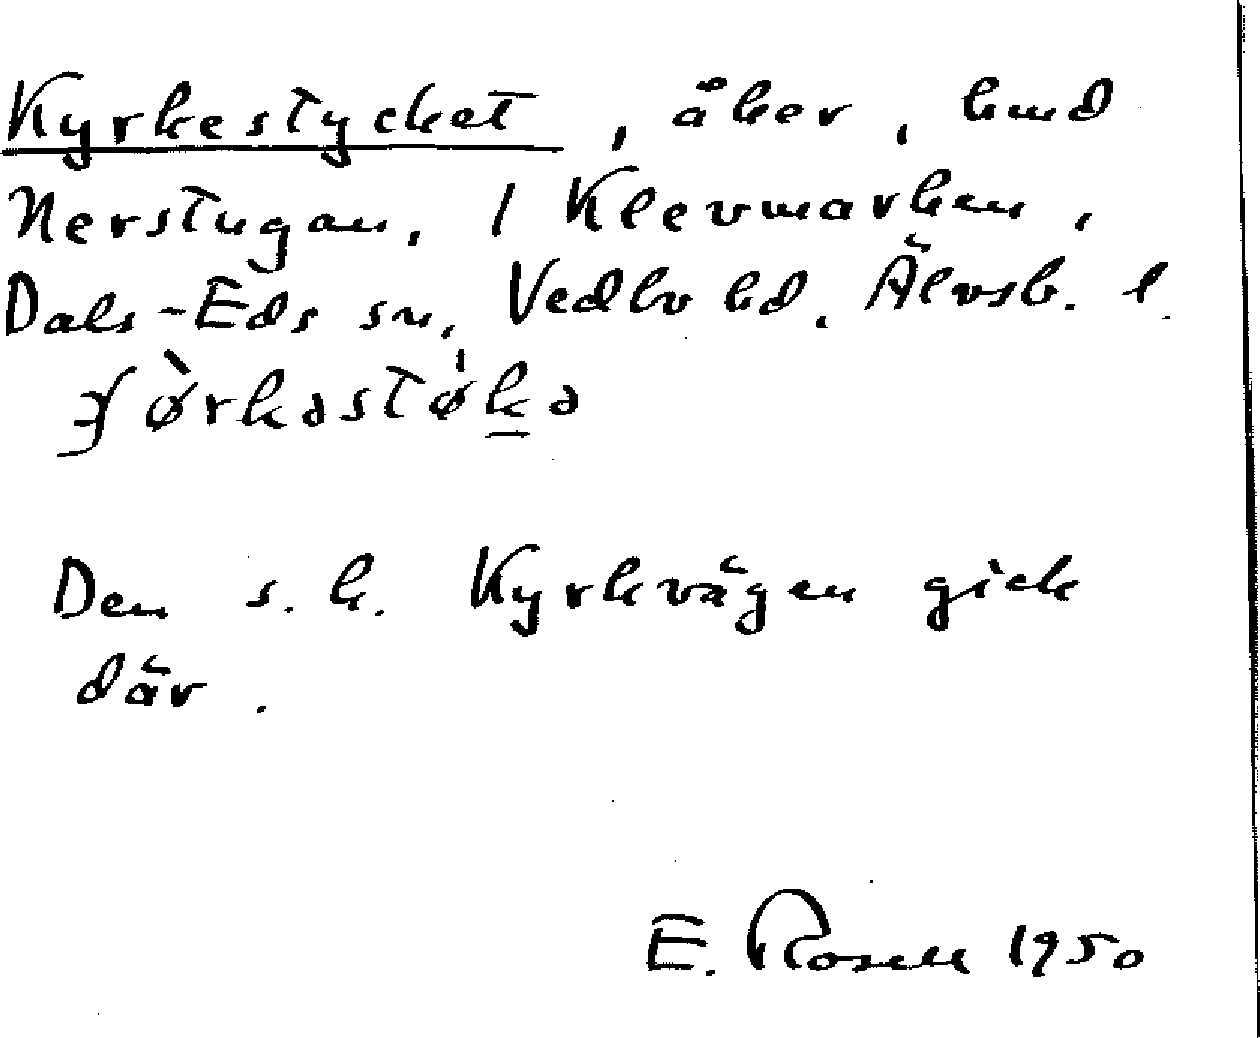 Kyrkestycket, åker, hmd
Nerstugan, 1 Klevmarken,
Dals-Eds sn, Vedbo hd. Älvsb. l.
Den s. k. Kyrkvägen gick
där.
E. Rosell 1950